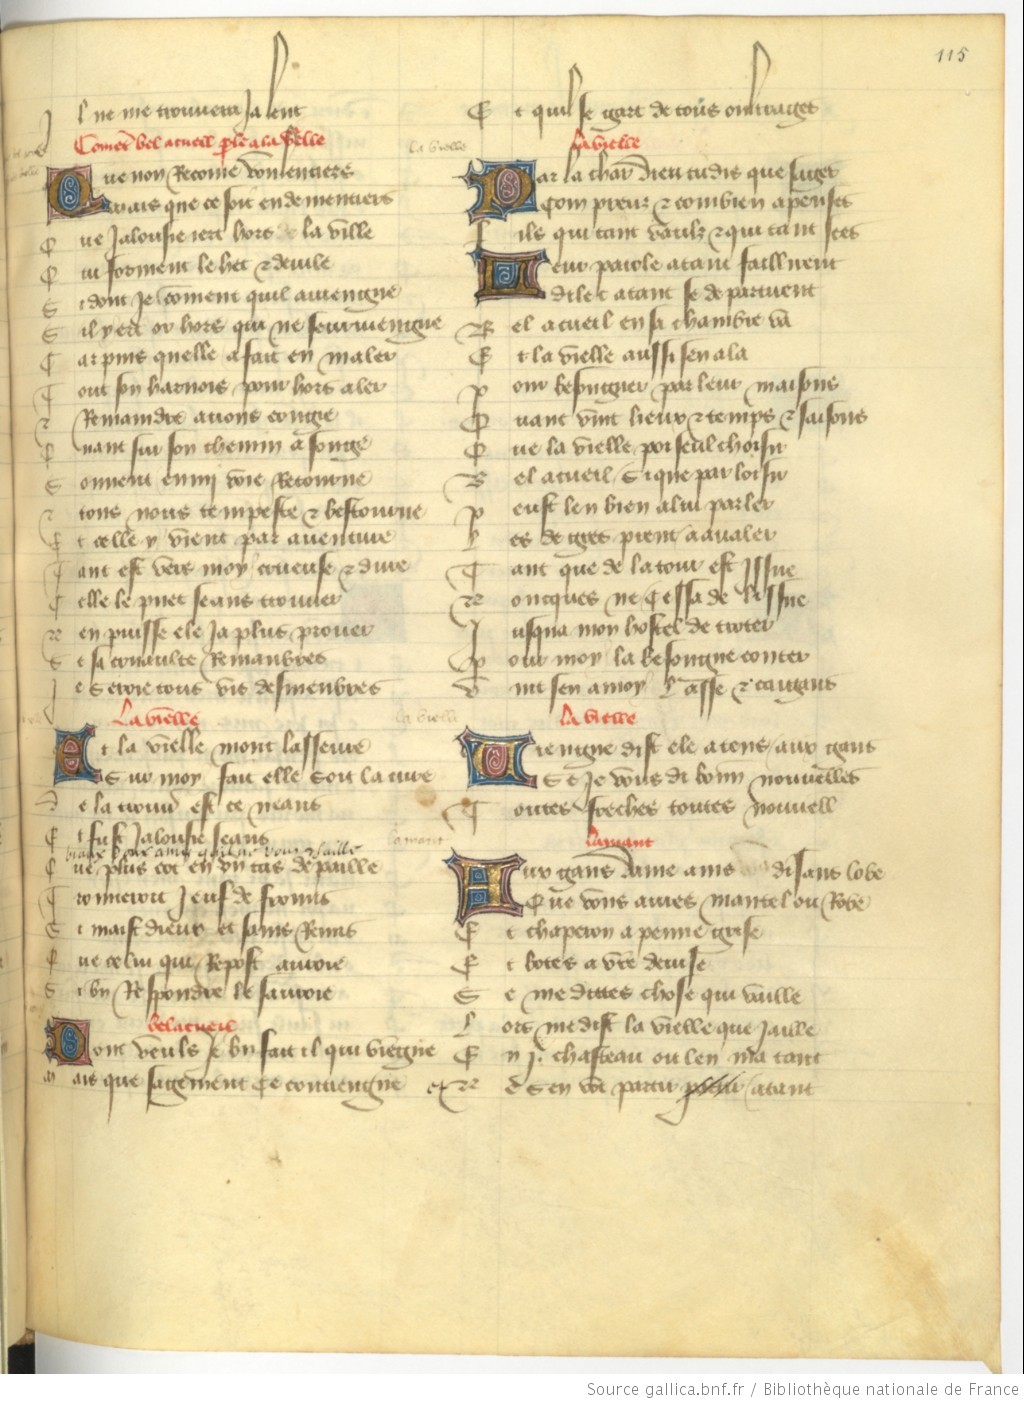 115
Il ne me trouvera ja lent
Coment bel acueil ple a la vielle
Que non Recomer voulentiers
Mais que ce soit endementiers
Que Jalousie iert hors la ville
Qui forment le het & deuile
Si dont Je coment quil auiengne
Sil y ert or hors qui ne seurviengne
Car puis quelle a fait en maler
Tout son harnois pour hors aler
Et Remaindre auons congie
Quant sur son chemin a songe
Souuent enmi voie Retourne
Et tous nous tempeste & bestourne
Et celle y vient par auenture
Tant est vers moy crueuse & dure
Celle le puet seans trouuer
Nen puisse ele Ja plus prouer
Se sa cruaulte Remanbres
Je seroie tous vis desmenbres
La vielle
Et la vielle mont lasseure
Sur moy fait elle soit la cure
De la trouuer est ce neans
Et fust Jalousie seans
biaux doux amis qui ne vous faille
Que plus tot en vn tas de paille
Trouueroit Jeufs de fromis
Si maist dieux et sains Remis
Que celui qui Repost auroie
Si bn Respondre le sauroie
belacueil
Dont veuls Je bn fait il qui viengne
Mais que sagement se contiengne
Et quil se gart de tous oultrages
la vielle
La vielle
Par la char dieu tu dis que sages
Com preux & combien apenses
Filz qui tant vaulz & qui tant sces
Leur parole atant faillirent
Dilec atant se departirent
Bel acueil en sa chambre va
Et la vielle aussi sen ala
Pour besongner par leur maisons
Quant vint lieux & temps & saisons
Que la vielle por seul choisir
Bel acueil / Si que par loisir
Peust len bien a lui parler
Les degres prent a aualer
Tant que de la tour est Issue
Noncques ne cessa de lissue
Jusqua mon hostel de troter
Pour moy la besongne conter
Vint sen a moy lasse & taugant
la vielle
La vielle
Vieingne dist ele a tens aux gans
Se Je vous di bonnes nouuelles
Toutes fresches toutes nouuell
lamant
Lamant
Aux gans dame ains disans lobe
Que vous aures mantel ou Robe
Et chaperon a penne grise
Et botes a vre deuise
Se me dittes chose qui vaille
Lors me dist la vielle que Jaille
En j. chasteau ou len ma tant
Ne sen vot partir atant
Source gallica.bnf.fr / Bibliothèque nationale de France